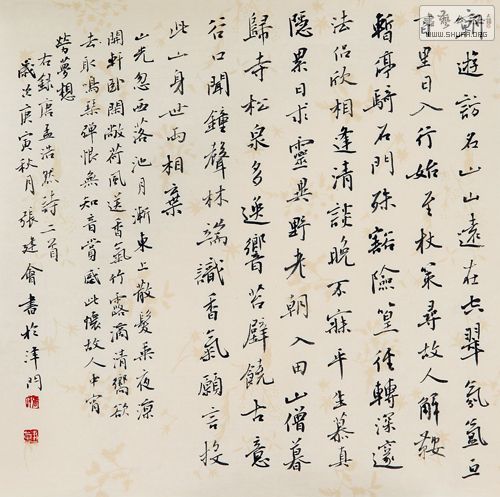 朝遊訪名山山遠在空翠氛氳亘
百里日入行始至杖策尋故人解鞍
暫亭騎石門殊豁險篁徑轉深邃
法侶欣相逢清談晚不寐平生慕真
隱累日求靈異野老朝入田山僧暮
歸寺松泉多逸響苔壁饒古意
谷口聞鐘聲林端識香氣願言投
此山身世兩相棄
山光忽西落池月漸東上散髮乘夜涼
開軒卧閑敞荷風送香氣竹露滴清響欲
去取鳴琴彈恨無知音賞感此懷故人中宵
勞夢想
右錄唐孟浩然詩二首
歲次庚寅秋月張建會書於津門
WWW.SHUHA.ORG